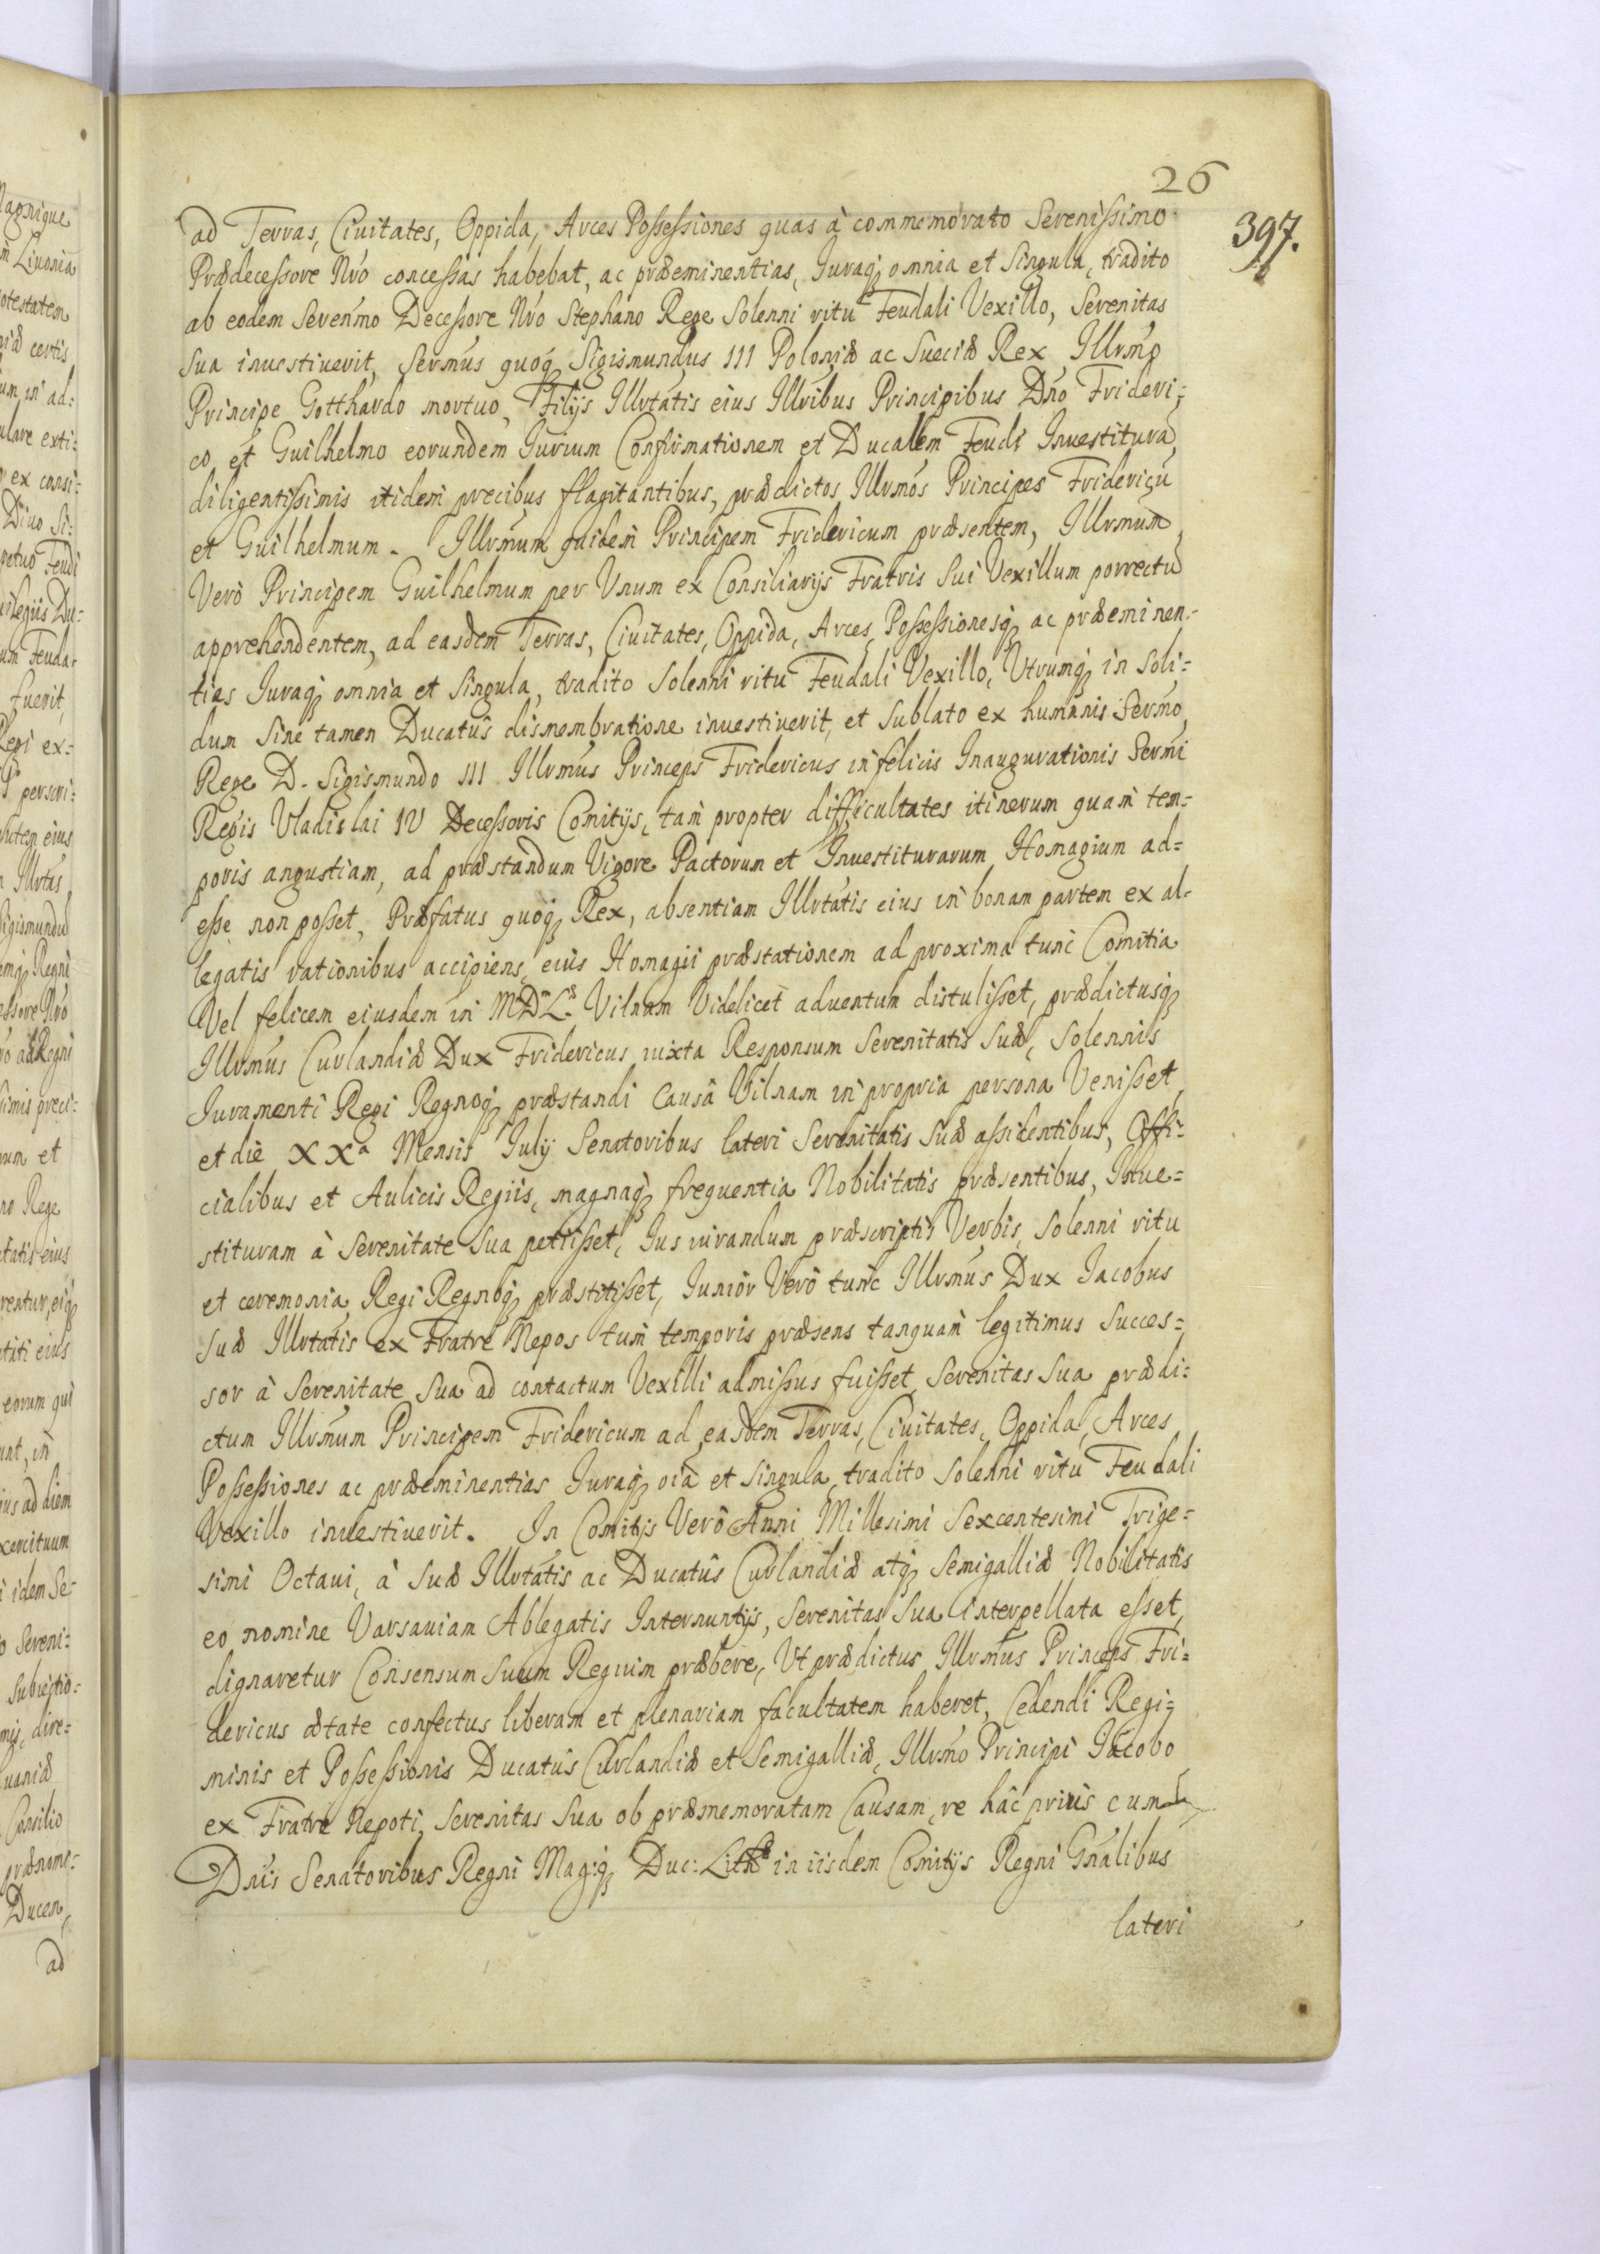 26
397.
ad Terras, Ciuitates, Oppida, Arces Possessiones quas à commemorato Serenissimo
Prædecessore Nrõ concessas habebat, ac præeminentias, Juraq; omnia et Singula, tradito
ab eodem Serenmõ Decessore Nrõ Stephano Rege Solenni ritu Feudali Vexillo, Serenitas
sua inuestiuerit, Sermũs quoq; Sigismundus III Poloniæ ac Sueciæ Rex, Illrmõ
Principe Gotthardo mortuo, Filijs Illrtãtis eius Illribus Principibus Dnõ Frideri-
co et Guilhelmo eorundem Jurium Confirmationem et Ducalem Feudi Inuestiturã
diligentissimis itidem precibus flagitantibus, prædictos Illrmõs Principes Fridericũ
et Guilhelmum. Illrmũm quidem Principem Fridericum præsentem, Illrmũm
Verò Principem Guilhelmum per Unum ex Consiliarijs Fratris Sui Vexillum porrectũ
apprehendentem, ad easdem Terras, Ciuitates, Oppida, Arces Possessionesq; ac præeminen-
tias Juraq; omnia et Singula, tradito Solenni ritu Feudali Vexillo, Utrumq; in Soli-
dum Sine tamen Ducatûs dismembratione inuestiuerit, et Sublato ex humanis Sermõ
Rege D. Sigismundo III Illrmũs Princeps Fridericus in felicis Inaugurationis Sermĩ
Regis Vladislai IV Decessoris Comitijs, tam propter difficultates itinerum quam tem-
poris angustiam, ad præstandum Vigore Pactorum et Inuestiturarum Homagium ad-
esse non posset, Præfatus quoq; Rex, absentiam Illrtãtis eius in bonam partem ex al-
legatis rationibus accipiens, eius Homagii præstationem ad proxima tunc Comitia
Vel felicem eiusdem in M.D.L. Vilnam Videlicet aduentum distulisset, prædictusq;
Illrmũs Curlandiæ Dux Fridericus iuxta Responsum Serenitatis Suæ, Solennis
Juramenti Regi Regnoq; præstandi Causâ Vilnam in propria persona Venisset,
et die XXª Mensis Julij Senatoribus lateri Serenitatis Suæ assidentibus, Offi-
cialibus et Aulicis Regiis, magnaq; frequentia Nobilitatis præsentibus, Inue-
stituram à Serenitate Sua petiisset, Jusiurandum præscriptis Verbis, Solenni ritu
et ceremonia Regi Regnoq; præstitisset, Junior Verò tunc Illrmũs Dux Jacobus
Suæ Illrtãtis ex Fratre Nepos tum temporis præsens tanquam legitimus Succes-
sor à Serenitate Sua ad contactum Vexilli admissus fuisset, Serenitas Sua prædi-
ctum Illrmũm Principem Fridericum ad easdem Terras, Ciuitates, Oppida, Arces
Possessiones ac præeminentias Juraq; oĩa et Singula, tradito Solenni ritu Feudali
Vexillo inuestiuerit. In Comitijs Verò Anni Millesimi Sexcentesimi Trige-
simi Octaui, à Suæ Illrtãtis ac Ducatûs Curlandiæ atq; Semigalliæ Nobilitatis
eo nomine Varsauiam Ablegatis Internuntijs, Serenitas Sua interpellata esset,
dignaretur Consensum Suum Regium præbere, Ut prædictus Illrmũs Princeps Fri-
dericus ætate confectus liberam et plenariam facultatem haberet, Cedendi Regi-
minis et Possessionis Ducatûs Curlandiæ et Semigalliæ, Illrmõ Principi Jacobo
ex Fratre Nepoti, Serenitas Sua ob præmemoratam Causam, re hâc prius cum
Dnĩs Senatoribus Regni Mag:q; Duc: Lith: in iisdem Comitijs Regni Gnãlibus
lateri